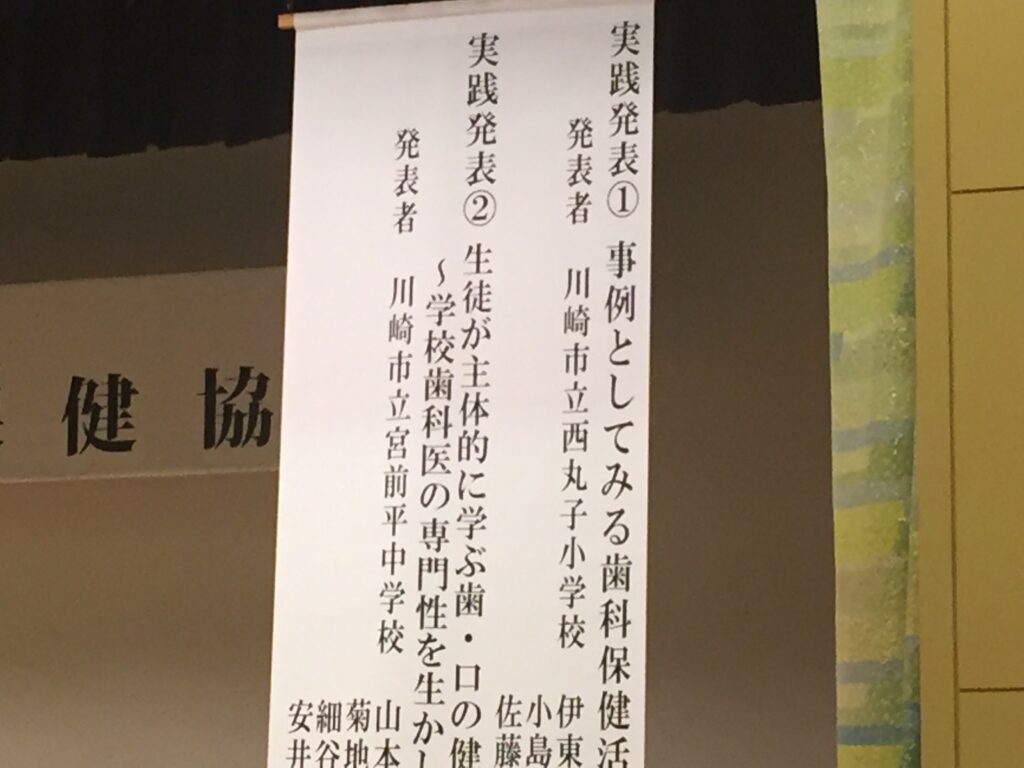 実践発表① 事例としてみる歯科保健活
発表者 川崎市立西丸子小学校 伊東
小島
佐藤
実践発表② 生徒が主体的に学ぶ歯・口の健
～学校歯科医の専門性を生かし
発表者 川崎市立宮前平中学校 山本
菊地
細谷
安井
健協